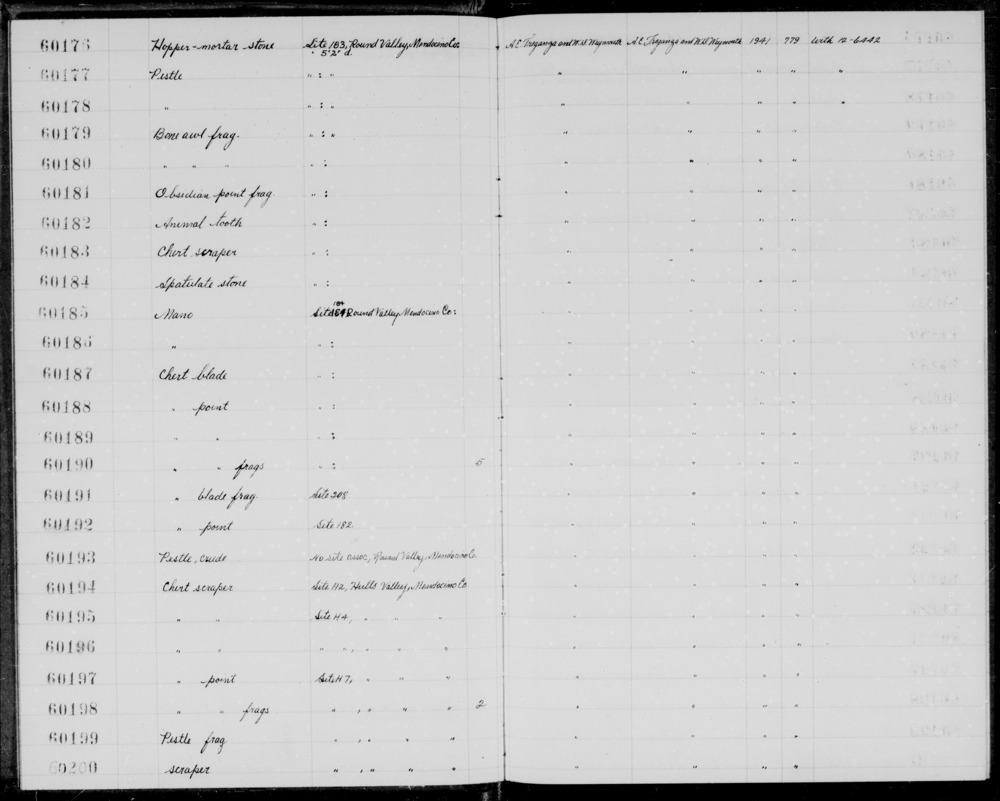 60176 Hopper-mortar stone Site 183, Round Valley, Mendocino Co: A.E. Treganza and W.W. Weymouth A.E. Treganza and W.W. Weymouth 1941 779 With 12-6442
5'2" d.
60177 Pestle " : " " " " " "
60178 " " : " " " " " "
60179 Bone awl frag. " : " " " " "
60180 " " " " : " " " "
60181 Obsidian point frag " : " " " "
60182 Animal tooth " : " " " "
60183 Chert scraper " : " " " "
60184 Spatulate stone " : " " " "
184
60185 Mano Site Round Valley, Mendocino Co: " " " "
60186 " " : " " " "
60187 Chert blade " : " " " "
60188 " point " : " " " "
60189 " " " : " " " "
60190 " " frags " : 5 " " " "
60191 " blade frag. Site 208 " " " "
60192 " point Site 182 " " " "
60193 Pestle, crude No site assoc, Round Valley, Mendocino Co. " " " "
60194 Chert scraper Site H2, Hulls Valley, Mendocino Co. " " " "
60195 " " Site H4, " " " " " " "
60196 " " " , " " " " " " "
60197 " point Site H7, " " " " " " "
60198 " " frags " , " " " 2 " " " "
60199 Pestle frag " , " " " " " " "
60200 scraper " , " " " " " " "